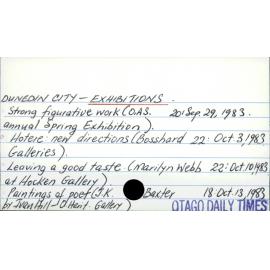 DUNEDIN CITY – EXHIBITIONS.
Strong figurative work (O.A.S. 20: Sep. 29, 1983.
annual Spring Exhibition).
Hotere: new directions (Bosshard 22: Oct. 3, 1983
Galleries).
Leaving a good taste (Marilyn Webb 22: Oct 10 1983
at Hocken Gallery)
Paintings of poet (J.K. Baxter 18 Oct. 13, 1983
by Ivan Hill – Gallery)
OTAGO DAILY TIMES